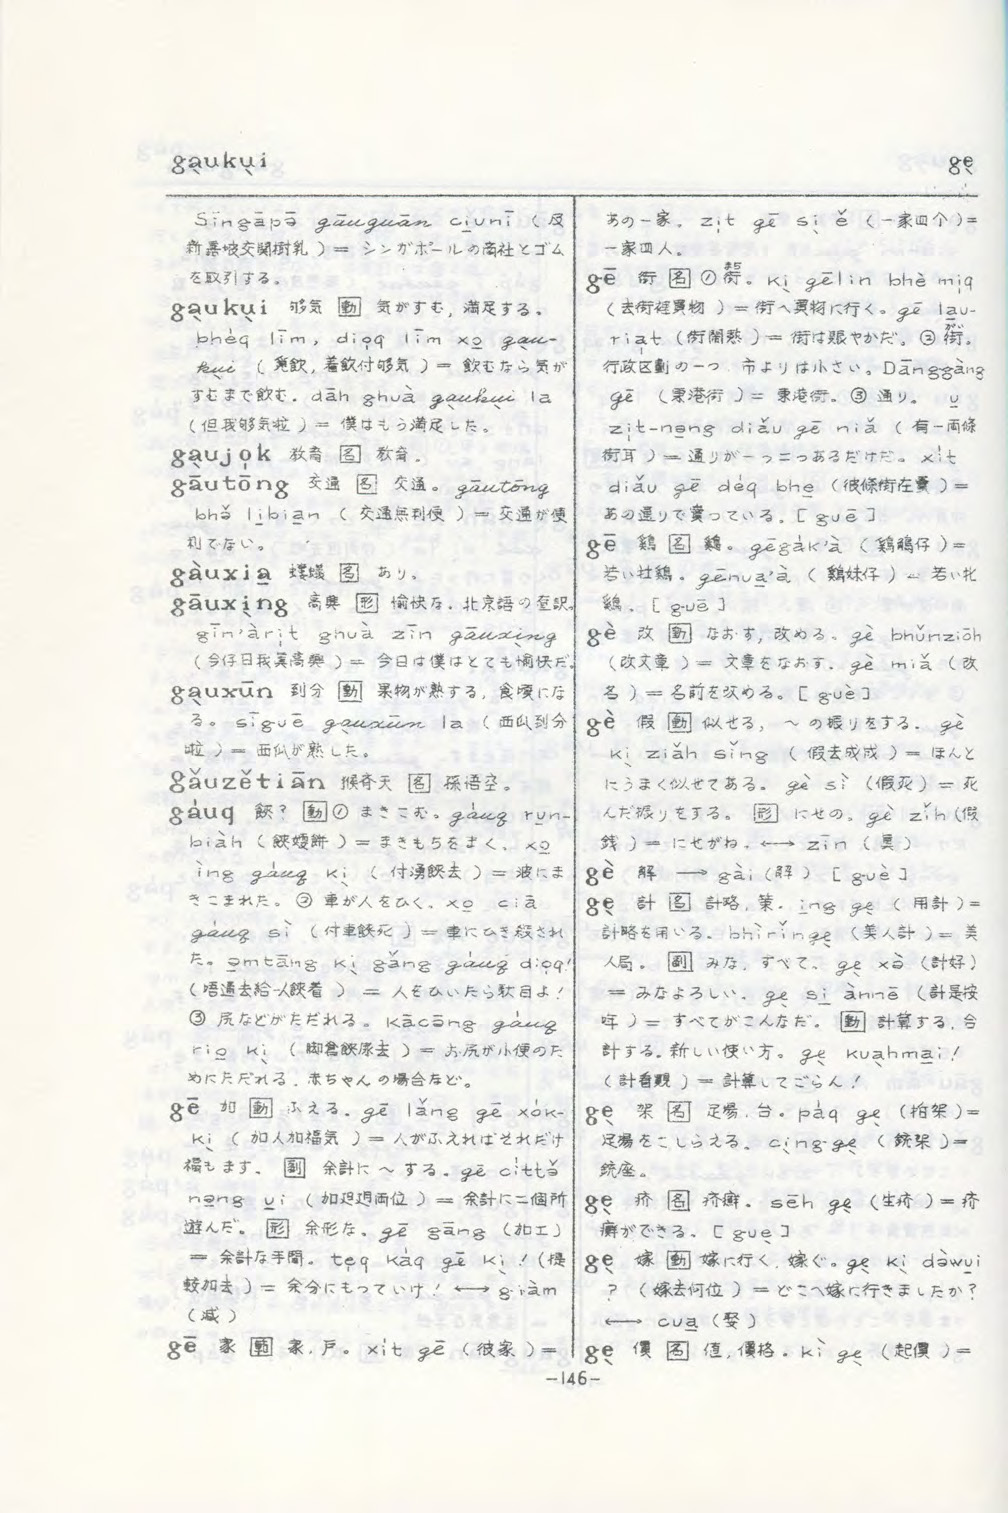 ga̖ukụi
gẹ
Sīngāpə̄ gāuguān ciụnī (及
新嘉坡交関樹乳 ) = シンガポールの商社とゴム
を取引する。
gạukụi 够気 [動] 気がすむ, 満足する。
bhèq līm, diọq līm xọ gạu-
kụi ( 覓飲, 着飲付够気 ) = 飲むなら気が
すむまで飲む. dāh ghuà gạukụi la
(但我够気啦 ) = 僕はもう満足した。
gạujọk 教育 [名] 教育.
gāutōng 交通 [名] 交通。gāutōng
bhə̆ lịbiạn ( 交通無利便 ) = 交通が便
利でない。
gàuxiạ 蟻 [名] あり。
gāuxịng 高興 [形] 愉快な. 北京語の直訳.
gīn'àrịt ghuà zīn gāuxịng
(今仔日我真高興 ) = 今日は僕はとても愉快だ.
gạuxūn 到分 [動] 果物が熟する, 食頃にな
る。sīguē gạuxūn la ( 西瓜到分
啦 ) = 西瓜が熟した。
gǎuzětiān 猴斉天 [名] 孫悟空。
gáuq 鋏? [動] ① まきこむ。gáuq rụn-
biàh ( 鋏餅 ) = まきもちをまく. xọ
ìng gáuq kị ( 付湧鋏去 ) = 波にま
きこまれた。② 車が人をひく. xọ ciā
gáuq sì (付車鋏死 ) = 車にひき殺され
た。ə̣mtāng kị gǎng gáuq diọq!
(唔通去給人鋏着 ) = 人をひいたら駄目よ!
③ 尻などがただれる。kācə̄ng gáuq
riọ kị ( 脚倉鋏尿去 ) = お尻が小便のた
めにただれる. 赤ちゃんの場合など。
gē 加 [動] ふえる. gē lǎng gē xók-
kị ( 加人加福気 ) = 人がふえればそれだけ
福もます. [副] 余計に〜する. gē cíttə̆
nə̣ng ụi (加迌迌両位 ) = 余計に二個所
遊んだ。 [形] 余形な. gē gāng (加工)
= 余計な手間。tẹq káq gē kị! (提
較加去 ) = 余分にもっていけ! ⟷ giàm
(減)
gē 家 [動] 家. 戸。xít gē (彼家 ) =
あの一家。zịt gē sị ě (一家四个 )=
一家四人。
gē 街 [名] ① 街(まち)。kị gēlin bhè mịq
(去街裡買物 ) = 街へ買物に行く。gē lạu-
riạt (街閙熱 ) = 街は賑やかだ。② 街(がい)。
行政区劃の一つ. 市よりは小さい。Dānggàng
gē (東港街 ) = 東港街。③ 通り。ụ
zịt-nə̣ng diǎu gē niǎ ( 有一両條
街耳 ) = 通りが一つ二つあるだけだ。xít
diǎu gē déq bhẹ (彼條街在賣 ) =
あの通りで賣っている。[ guē ]
gē 鷄 [名] 鷄。gēgák'à ( 鷄鵤仔 ) =
若い牡鷄。gēnuạ'à ( 鷄妹仔 ) = 若い牝
鷄. [ guē ]
gè 改 [動] なおす, 改める。gè bhǔnziōh
(改文章 ) = 文章をなおす. gè miǎ ( 改
名 ) = 名前を改める。[ guè ]
gè 假 [動] 似せる, 〜の振りをする. gè
kị ziǎh sǐng ( 假去成成 ) = ほんと
にうまく似せてある。gè sì (假死) = 死
んだ振りをする。[形] にせの。gè zǐh (假
銭 ) = にせがね. ⟷ zīn (真)
gè 解 → gài (解) [ guè ]
gẹ 計 [名] 計略, 策. ịng gẹ ( 用計 )=
計略を用いる. bhìrǐngẹ (美人計 ) = 美
人局。[副] みな, すべて. gẹ xə̀ (計好)
= みなよろしい. gẹ sị ànnē (計是按
年 ) = すべてがこんなだ。[動] 計算する, 合
計する. 新しい使い方。gẹ kuạhmại!
(計看覔 ) = 計算してごらん!
gẹ 架 [名] 足場, 台。páq gẹ (拍架 )=
足場をこしらえる. cịng-gẹ ( 銃架 )=
銃座。
gẹ 疥 [名] 疥癬. sēh gẹ (生疥 ) = 疥
癬ができる. [ guẹ ]
gẹ 嫁 [動] 嫁に行く. 嫁ぐ。gẹ kị də̀wụi
? (嫁去何位 ) = どこへ嫁に行きましたか?
⟷ cuạ (娶)
gẹ 價 [名] 値, 價格。kì gẹ (起價 ) =
-146-